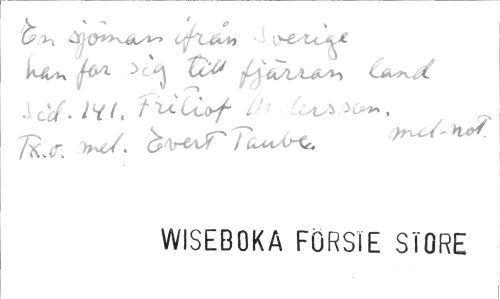 En sjöman ifrån Sverige
han for sig till fjärran land
Sid. 141. Fritiof Andersson.
Tx. o. mel. Evert Taube. mel-not.
WISEBOKA FÖRSTE STORE